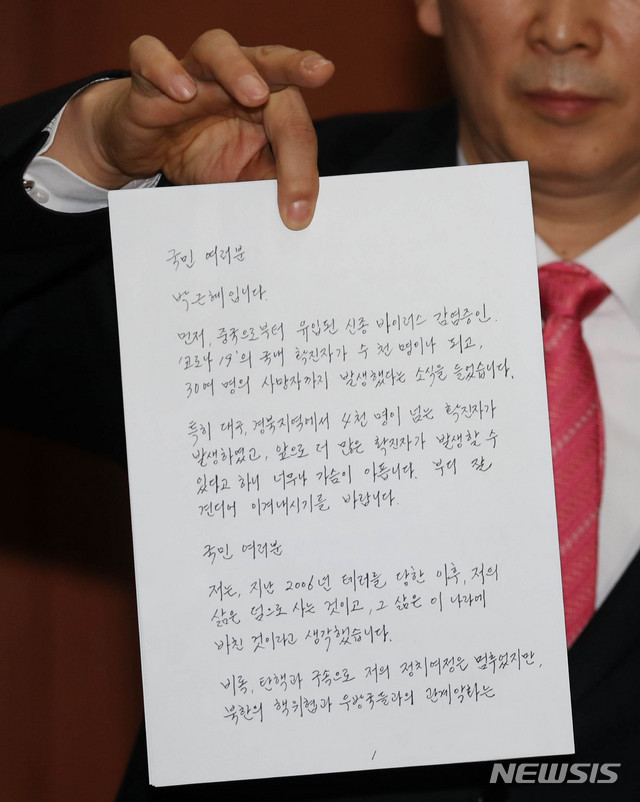 국민 여러분
박근혜입니다.
먼저, 중국으로부터 유입된 신종 바이러스 감염증인.
'코로나 19'의 국내 확진자가 수 천 명이나 되고,
30여 명의 사망자까지 발생했다는 소식을 들었습니다.
특히 대구, 경북지역에서 4천 명이 넘는 확진자가
발생하였고, 앞으로 더 많은 확진자가 발생할 수
있다고 하니 너무나 가슴이 아픕니다. 부디 잘
견디어 이겨내시기를 바랍니다.
국민 여러분
저는, 지난 2006년 테러를 당한 이후, 저의
삶은 덤으로 사는 것이고, 그 삶은 이 나라에
바친 것이라고 생각했습니다.
비록, 탄핵과 구속으로 저의 정치여정은 멈추었지만,
북한의 핵위협과 우방국들과의 관계악화는
1
NEWSIS